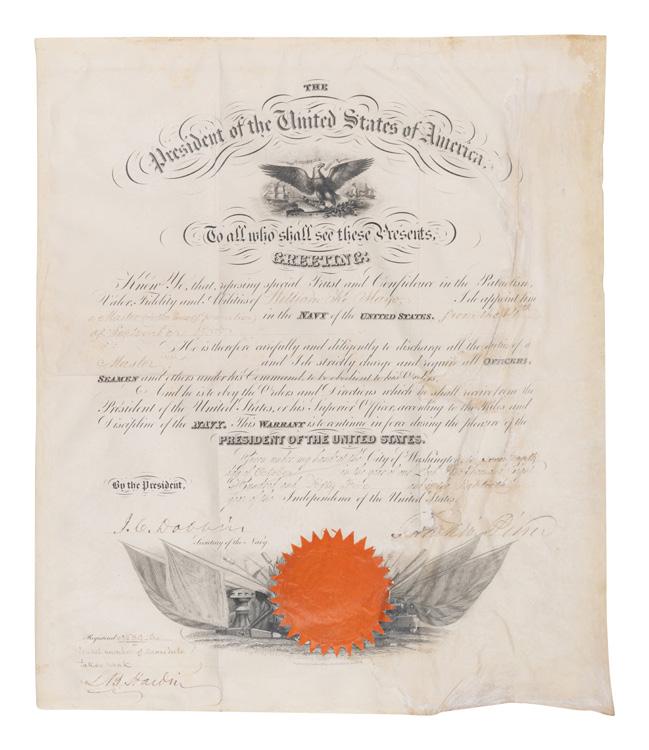 THE
President of the United States of America.
To all who shall see these Presents,
GREETING:
Know Ye, that, reposing special Trust and Confidence in the Patriotism,
Valor, Fidelity and Abilities of William K. Mayo I do appoint him
a Master in the in the NAVY of the UNITED STATES. from the
of September
He is therefore carefully and diligently to discharge all the duties of a
Master and I do strictly charge and require all OFFICERS,
SEAMEN and others under his Command, to be obedient to his Orders.
And he is to obey the Orders and Directions which he shall receive from the
President of the United States, or his Superior Officer, according to the Rules and
Discipline of the NAVY. This WARRANT is to continue in force during the pleasure of the
PRESIDENT OF THE UNITED STATES.
Given under my hand at the City of Washington
day of in the year of our Lord One thousand Eight
Hundred and Fifty and in the
year of the Independence of the United States.
By the President,
J. C. Dobbin
Secretary of the Navy.
Franklin Pierce
Registered
taken rank
Hardin